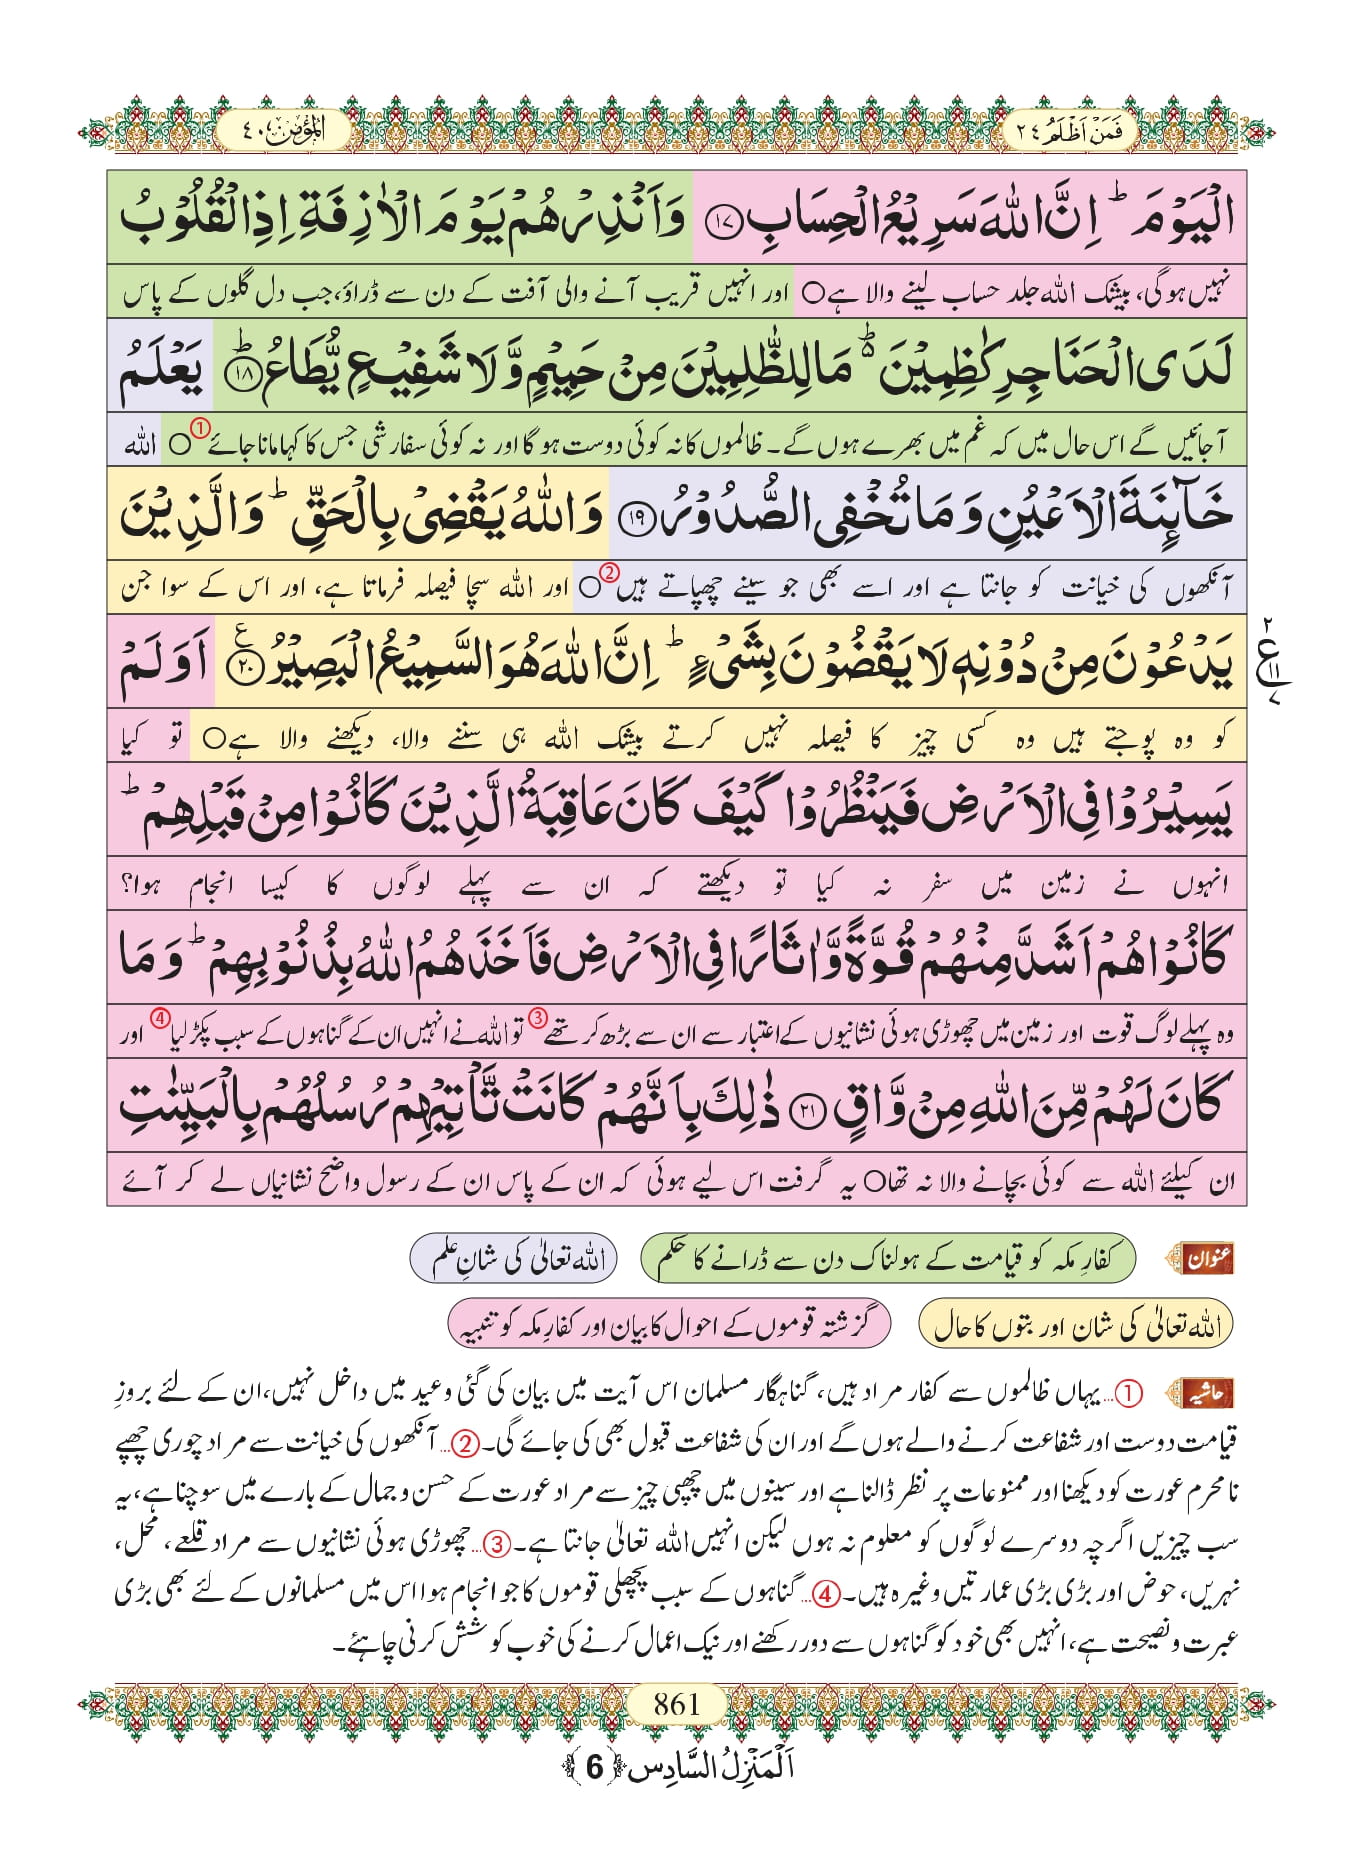 فَمَنْ اَظْلَمُ ٢٤
الْمُؤْمِن ٤٠
الْيَوْمَ ؕ اِنَّ اللّٰهَ سَرِیْعُ الْحِسَابِ ﴿۱۷﴾ وَ اَنْذِرْهُمْ یَوْمَ الْاٰزِفَةِ اِذِ الْقُلُوْبُ
نہیں ہوگی، بیشک اللہ جلد حساب لینے والا ہے○ اور انہیں قریب آنے والی آفت کے دن سے ڈراؤ،جب دل گلوں کے پاس
لَدَی الْحَنَاجِرِ كٰظِمِیْنَ ۬ؕ مَا لِلظّٰلِمِیْنَ مِنْ حَمِیْمٍ وَّ لَا شَفِیْعٍ یُّطَاعُ ﴿ؕ۱۸﴾ یَعْلَمُ
آجائیں گے اس حال میں کہ غم میں بھرے ہوں گے۔ ظالموں کا نہ کوئی دوست ہوگا اور نہ کوئی سفارشی جس کا کہا مانا جائے①○ اللہ
خَآىِٕنَةَ الْاَعْیُنِ وَ مَا تُخْفِی الصُّدُوْرُ ﴿۱۹﴾ وَ اللّٰهُ یَقْضِیْ بِالْحَقِّ ؕ وَ الَّذِیْنَ
آنکھوں کی خیانت کو جانتا ہے اور اسے بھی جو سینے چھپاتے ہیں②○ اور اللہ سچا فیصلہ فرماتا ہے، اور اس کے سوا جن
یَدْعُوْنَ مِنْ دُوْنِهٖ لَا یَقْضُوْنَ بِشَیْءٍ ؕ اِنَّ اللّٰهَ هُوَ السَّمِیْعُ الْبَصِیْرُ ﴿۲۰ع﴾ اَوَ لَمْ
٢ ع ١١ ٧
کو وہ پوجتے ہیں وہ کسی چیز کا فیصلہ نہیں کرتے بیشک اللہ ہی سننے والا، دیکھنے والا ہے○ تو کیا
یَسِیْرُوْا فِی الْاَرْضِ فَیَنْظُرُوْا كَیْفَ كَانَ عَاقِبَةُ الَّذِیْنَ كَانُوْا مِنْ قَبْلِهِمْ ؕ
انہوں نے زمین میں سفر نہ کیا تو دیکھتے کہ ان سے پہلے لوگوں کا کیسا انجام ہوا؟
كَانُوْا هُمْ اَشَدَّ مِنْهُمْ قُوَّةً وَّ اٰثَارًا فِی الْاَرْضِ فَاَخَذَهُمُ اللّٰهُ بِذُنُوْبِهِمْ ؕ وَ مَا
وہ پہلے لوگ قوت اور زمین میں چھوڑی ہوئی نشانیوں کے اعتبار سے ان سے بڑھ کر تھے③ تو اللہ نے انہیں ان کے گناہوں کے سبب پکڑلیا④ اور
كَانَ لَهُمْ مِّنَ اللّٰهِ مِنْ وَّاقٍ ﴿۲۱﴾ ذٰلِكَ بِاَنَّهُمْ كَانَتْ تَّاْتِیْهِمْ رُسُلُهُمْ بِالْبَیِّنٰتِ
ان کیلئے اللہ سے کوئی بچانے والا نہ تھا○ یہ گرفت اس لیے ہوئی کہ ان کے پاس ان کے رسول واضح نشانیاں لے کر آئے
عنوان کفارِ مکہ کو قیامت کے ہولناک دن سے ڈرانے کا حکم اللہ تعالیٰ کی شانِ علم
اللہ تعالیٰ کی شان اور بتوں کا حال گزشتہ قوموں کے احوال کا بیان اور کفارِ مکہ کو تنبیہ
حاشیہ ①…یہاں ظالموں سے کفار مراد ہیں، گناہگار مسلمان اس آیت میں بیان کی گئی وعید میں داخل نہیں،ان کے لئے بروزِ
قیامت دوست اور شفاعت کرنے والے ہوں گے اور ان کی شفاعت قبول بھی کی جائے گی۔②…آنکھوں کی خیانت سے مراد چوری چھپے
نا محرم عورت کو دیکھنا اور ممنوعات پر نظر ڈالنا ہے اور سینوں میں چھپی چیز سے مراد عورت کے حسن و جمال کے بارے میں سوچنا ہے،یہ
سب چیزیں اگرچہ دوسرے لوگوں کو معلوم نہ ہوں لیکن انہیں اللہ تعالیٰ جانتا ہے۔③…چھوڑی ہوئی نشانیوں سے مراد قلعے، محل،
نہریں، حوض اور بڑی بڑی عمارتیں وغیرہ ہیں۔④…گناہوں کے سبب پچھلی قوموں کا جو انجام ہوا اس میں مسلمانوں کے لئے بھی بڑی
عبرت و نصیحت ہے، انہیں بھی خود کو گناہوں سے دور رکھنے اور نیک اعمال کرنے کی خوب کوشش کرنی چاہئے۔
861
اَلْمَنْزِلُ السَّادِس ﴿6﴾